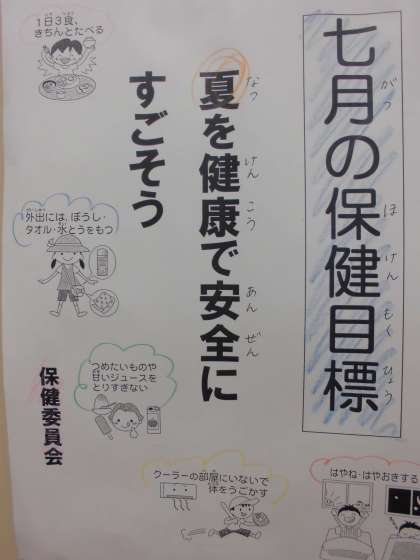 七月の保健目標
がつ ほけんもくひょう
夏を健康で安全に
なつ けんこう あんぜん
すごそう
1日3食、
きちんとたべる
外出には、ぼうし・
タオル・水とうをもつ
つめたいものや
甘いジュースを
とりすぎない
クーラーの部屋にいないで
体をうごかす
はやね・はやおきする
保健委員会